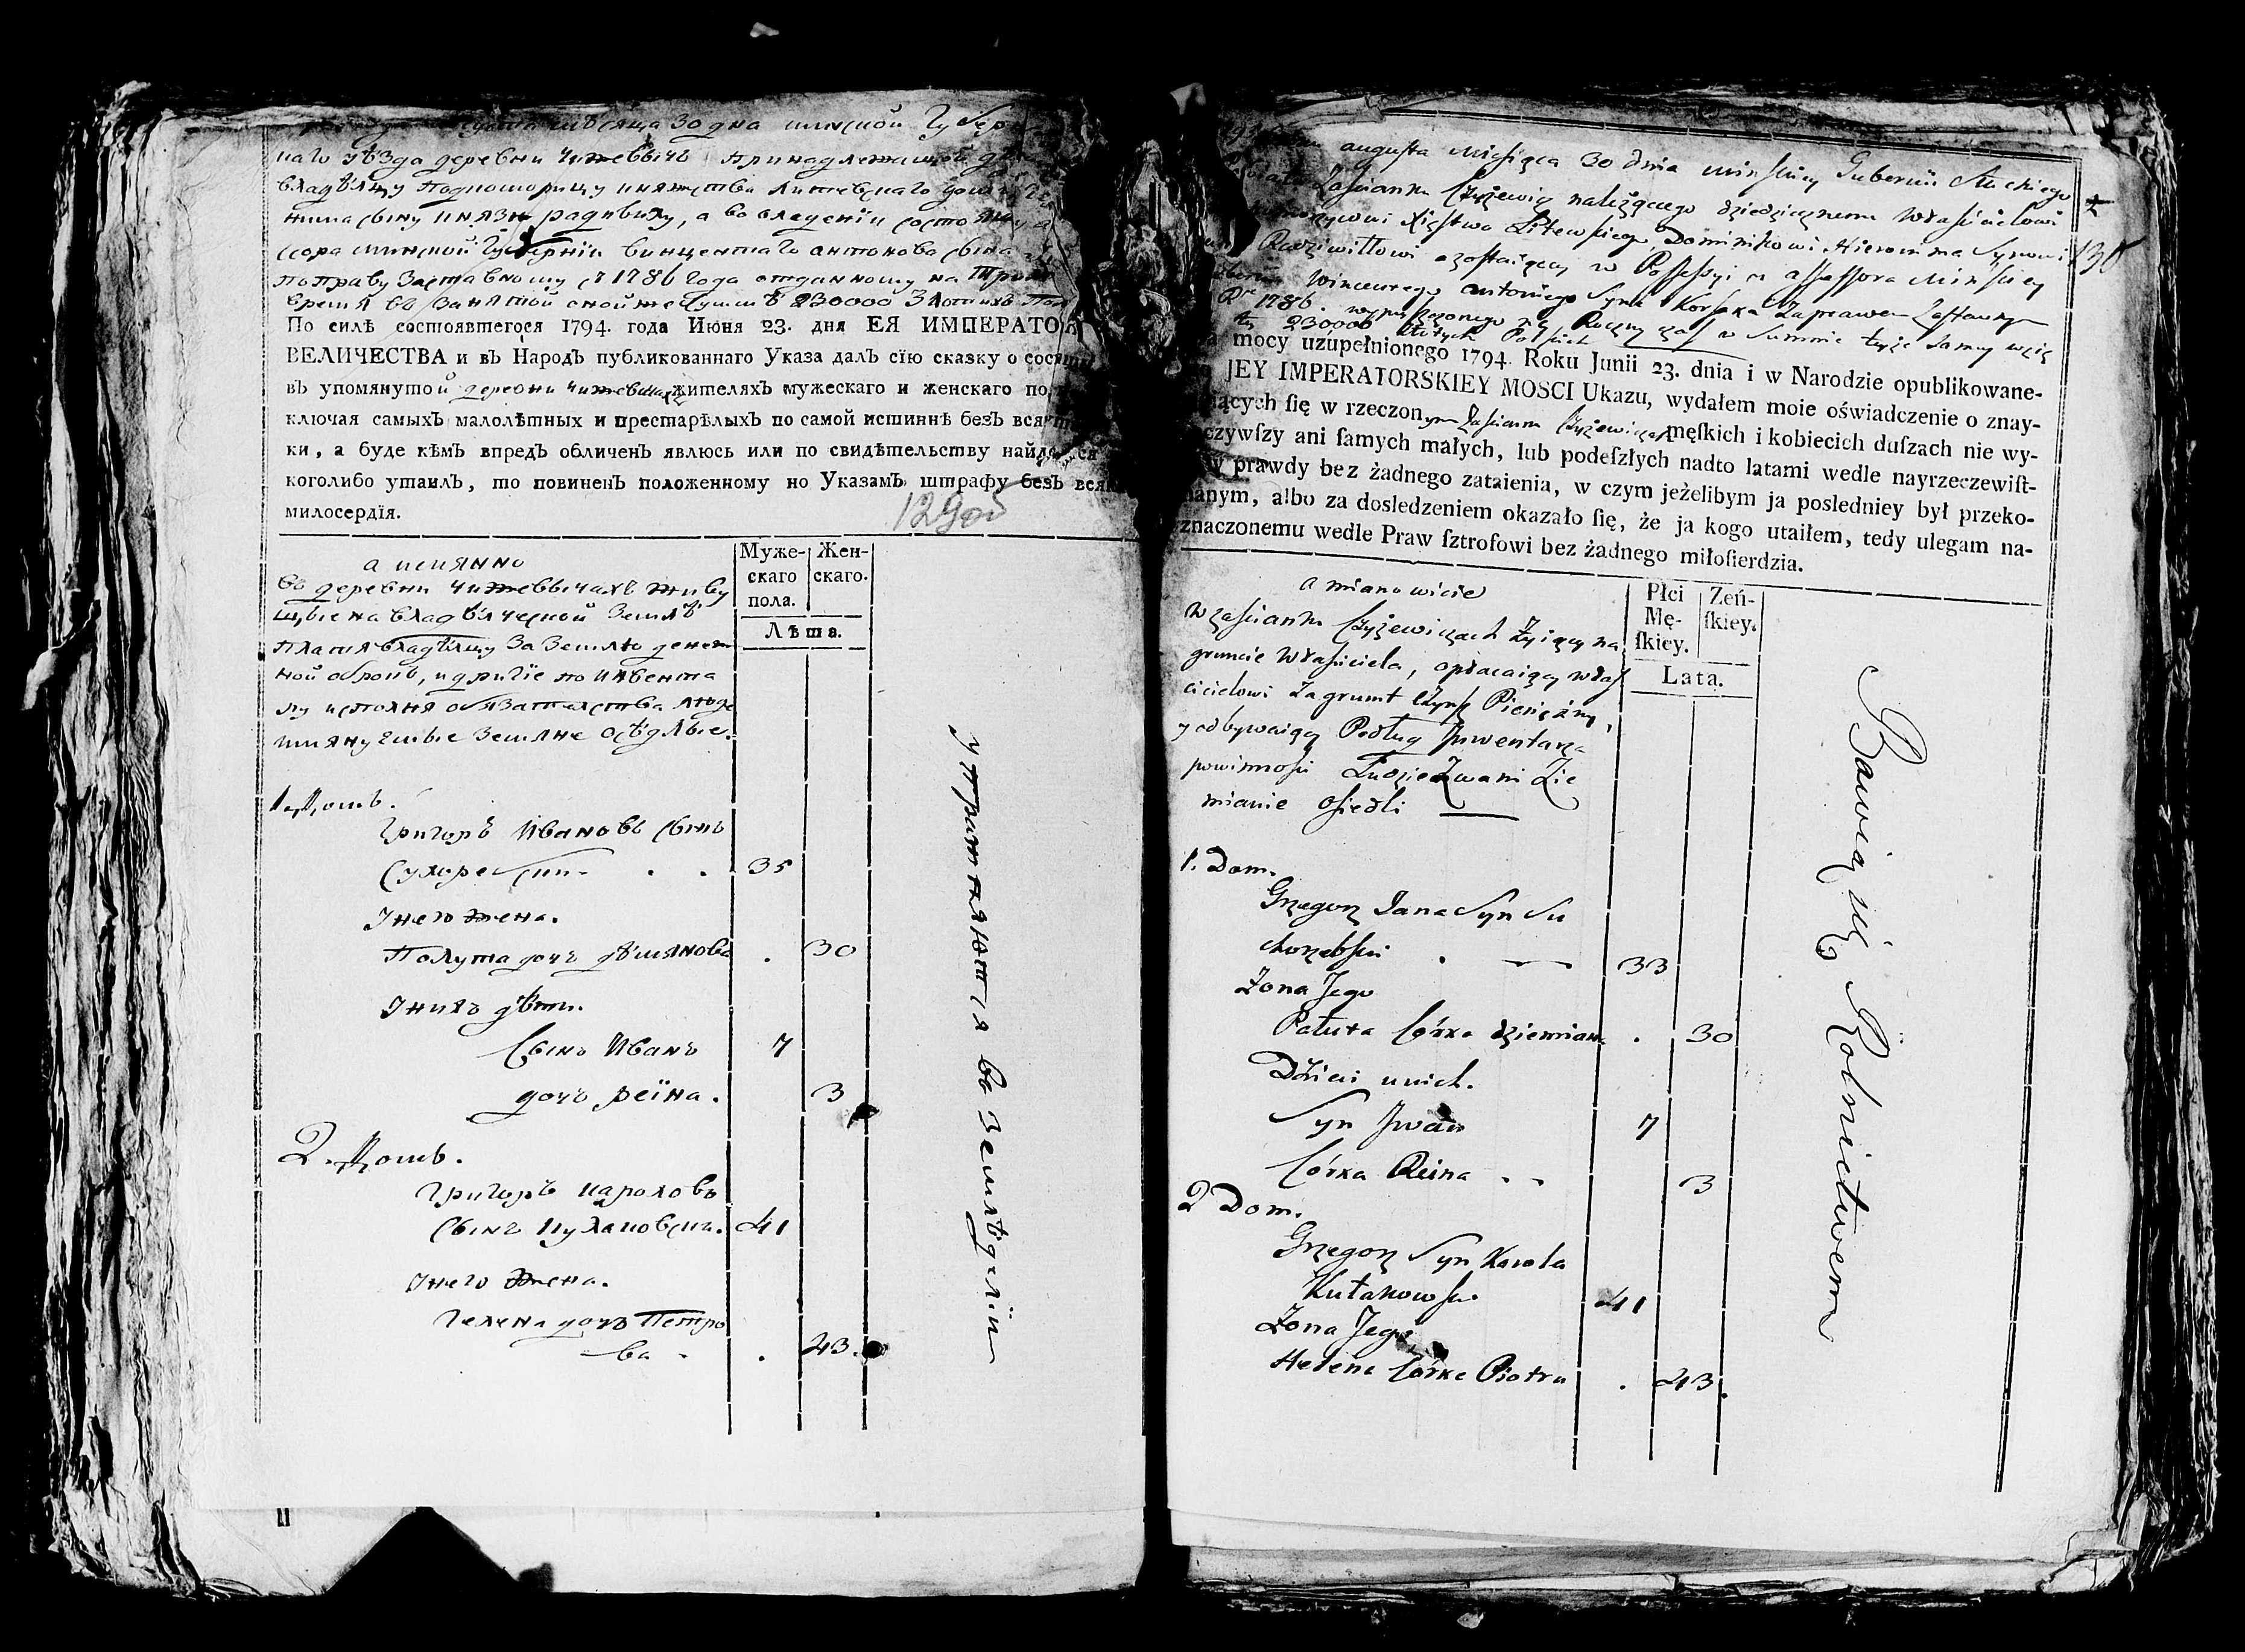 месяца 30 дна минской Губер
наго уѣзда деревни Чижевычъ принадлежащой
владѣлцу Подкоморицу княжства Литевскаго доми
нима сыну князю радивилу, а во владении состоящу а
ссора минской Губернїи винцентаго антонова сына
по праву заставному с 1786 года отданному на
время въ занятой оной же суммѣ 230000 Злотихъ Пол
По силѣ состоявшегося 1794. года Июня 23. дня ЕЯ ИМПЕРАТО
ВЕЛИЧЕСТВА и въ Народъ публикованнаго Указа далъ сїю сказку о
въ упомянутой деревни чижевичахъ жителяхъ мужескаго и женскаго по
ключая самыхъ малолѣтныхъ и престарѣлыхъ по самой истиннѣ безъ вся
ки, а буде кѣмъ впредъ обличенъ явлюсь или по свидѣтельству най
коголибо утаилъ, то повиненъ положенному по Указамъ штрафу безъ вся
милосердїя.
129об
а имянно
во деревни чижеввычахъ живу
щые на владѣлческой Землѣ
платя владѣлцу За Землю денеж
ной оброкъ, и другїе по инвента
ру исполня обязателства люде
имянуемые Земляне осѣдлые.
Муже- Жен-
скаго скаго.
пола.
Лѣта.
1. Домъ.
Григоръ Ивановъ сынъ
Сухоребски . . 35
У него жена.
Полута дочъ дѣмянова . 30
У нихъ дѣти.
Сынъ Иванъ 7
дочъ реïна. 3
2. Домъ.
Григоръ каролювъ
сынъ Кулаковски. 41
У него жена.
Гелена дочъ Петро
ва . . 43.
упражняются во земледелiи
augusta Miesiąca 30 dnia minskiey Gubernii Słuckiego
Zaścianku Czyżewicz należącego dziedzicznemu Właścicielowi
Xięstwa Litewskiego, Dominikowi Hieronima Synowi
Radziwiłłowi a zostaiącey w Possessyi u assessora Minskiey
Wincentego antoniego Syna Korsaka za prawem Zastawnym
1786 wypuszczonego na Roczny czas w Summie teyże samey wzię
tey 230000 Złotych Polskich
130
mocy uzupełnionego 1794. Roku Junii 23. dnia i w Narodzie opublikowane-
JEY IMPERATORSKIEY MOSCI Ukazu, wydałem moie oświadczenie o znay-
iących ſię w rzeczonym Zaścianku Czyżewiczach męſkich i kobiecich duſzach nie wy-
czywſzy ani ſamych małych, lub podeſzłych nadto latami wedle nayrzeczewiſt-
prawdy bez żadnego zataienia, w czym jeżelibym ja posledniey był przeko-
nanym, albo za dosledzeniem okazało ſię, że ja kogo utaiłem, tedy ulegam na-
znaczonemu wedle Praw ſztrofowi bez żadnego miłoſierdzia.
a mianowicie
W zaścianku Czyżewiczach Żyiący na
gruncie Właściciela, opłacaiący właś
cicielowi za grunt czynsz Pieniężny,
y odbywaiący Podług Jnwentarza
powinności Ludzie Zwani Zie
mianie osiedli
Płci Zeń-
Mę- ſkiey.
ſkiey.
Lata.
1. Dom.
Grzegorz Jana Syn Su
chorzebski . 33
Zona Jego
Połuta Córka dziemiana . 30
Dzieci unich.
Syn Jwan 7
Córka Reina . . 3
2 Dom.
Grzegorz Syn Karola
Kułakowski 41
Zona Jego
Helena Córka Piotra . 43.
Bawią się Rolnictwem